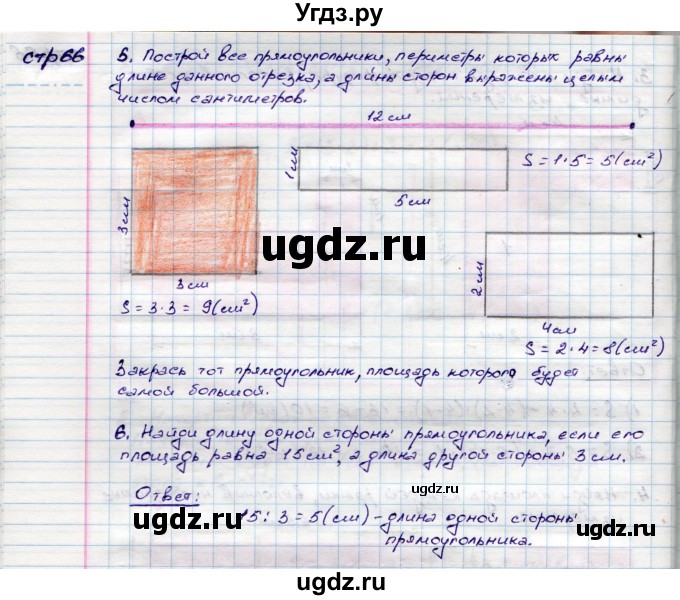 Угдз.ру
стр 66
5. Построй все прямоугольники, периметры которых равны
длине данного отрезка, а длины сторон выражены целым
числом сантиметров.
12 см
3 см
3 см
S = 3 · 3 = 9 (см²)
1 см
5 см
S = 1 · 5 = 5 (см²)
2 см
4 см
S = 2 · 4 = 8 (см²)
ugdz.ru
ugdz.ru
Закрась тот прямоугольник, площадь которого будет
самой большой.
6. Найди длину одной стороны прямоугольника, если его
площадь равна 15 см², а длина другой стороны 3 см.
ugdz.ru
ugdz.ru
Ответ:
15 : 3 = 5 (см) - длина одной стороны
прямоугольника.
ugdz.ru